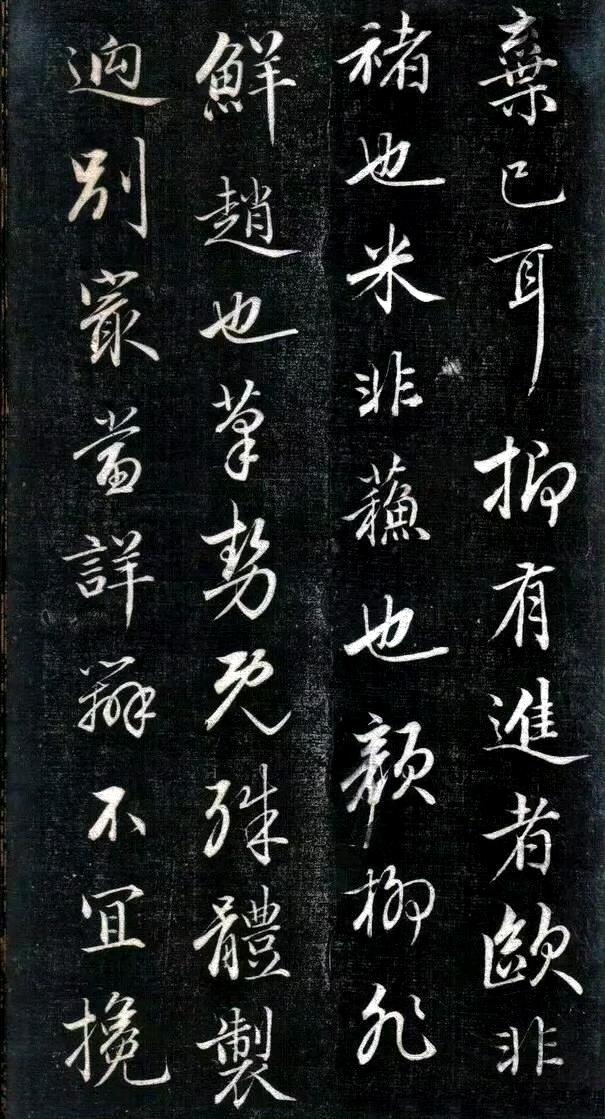 棄已耳抑有進者歐非
褚也米非蘓也顔柳非
鮮趙也筆勢既殊體製
逈別㝡當詳辨不宜攙